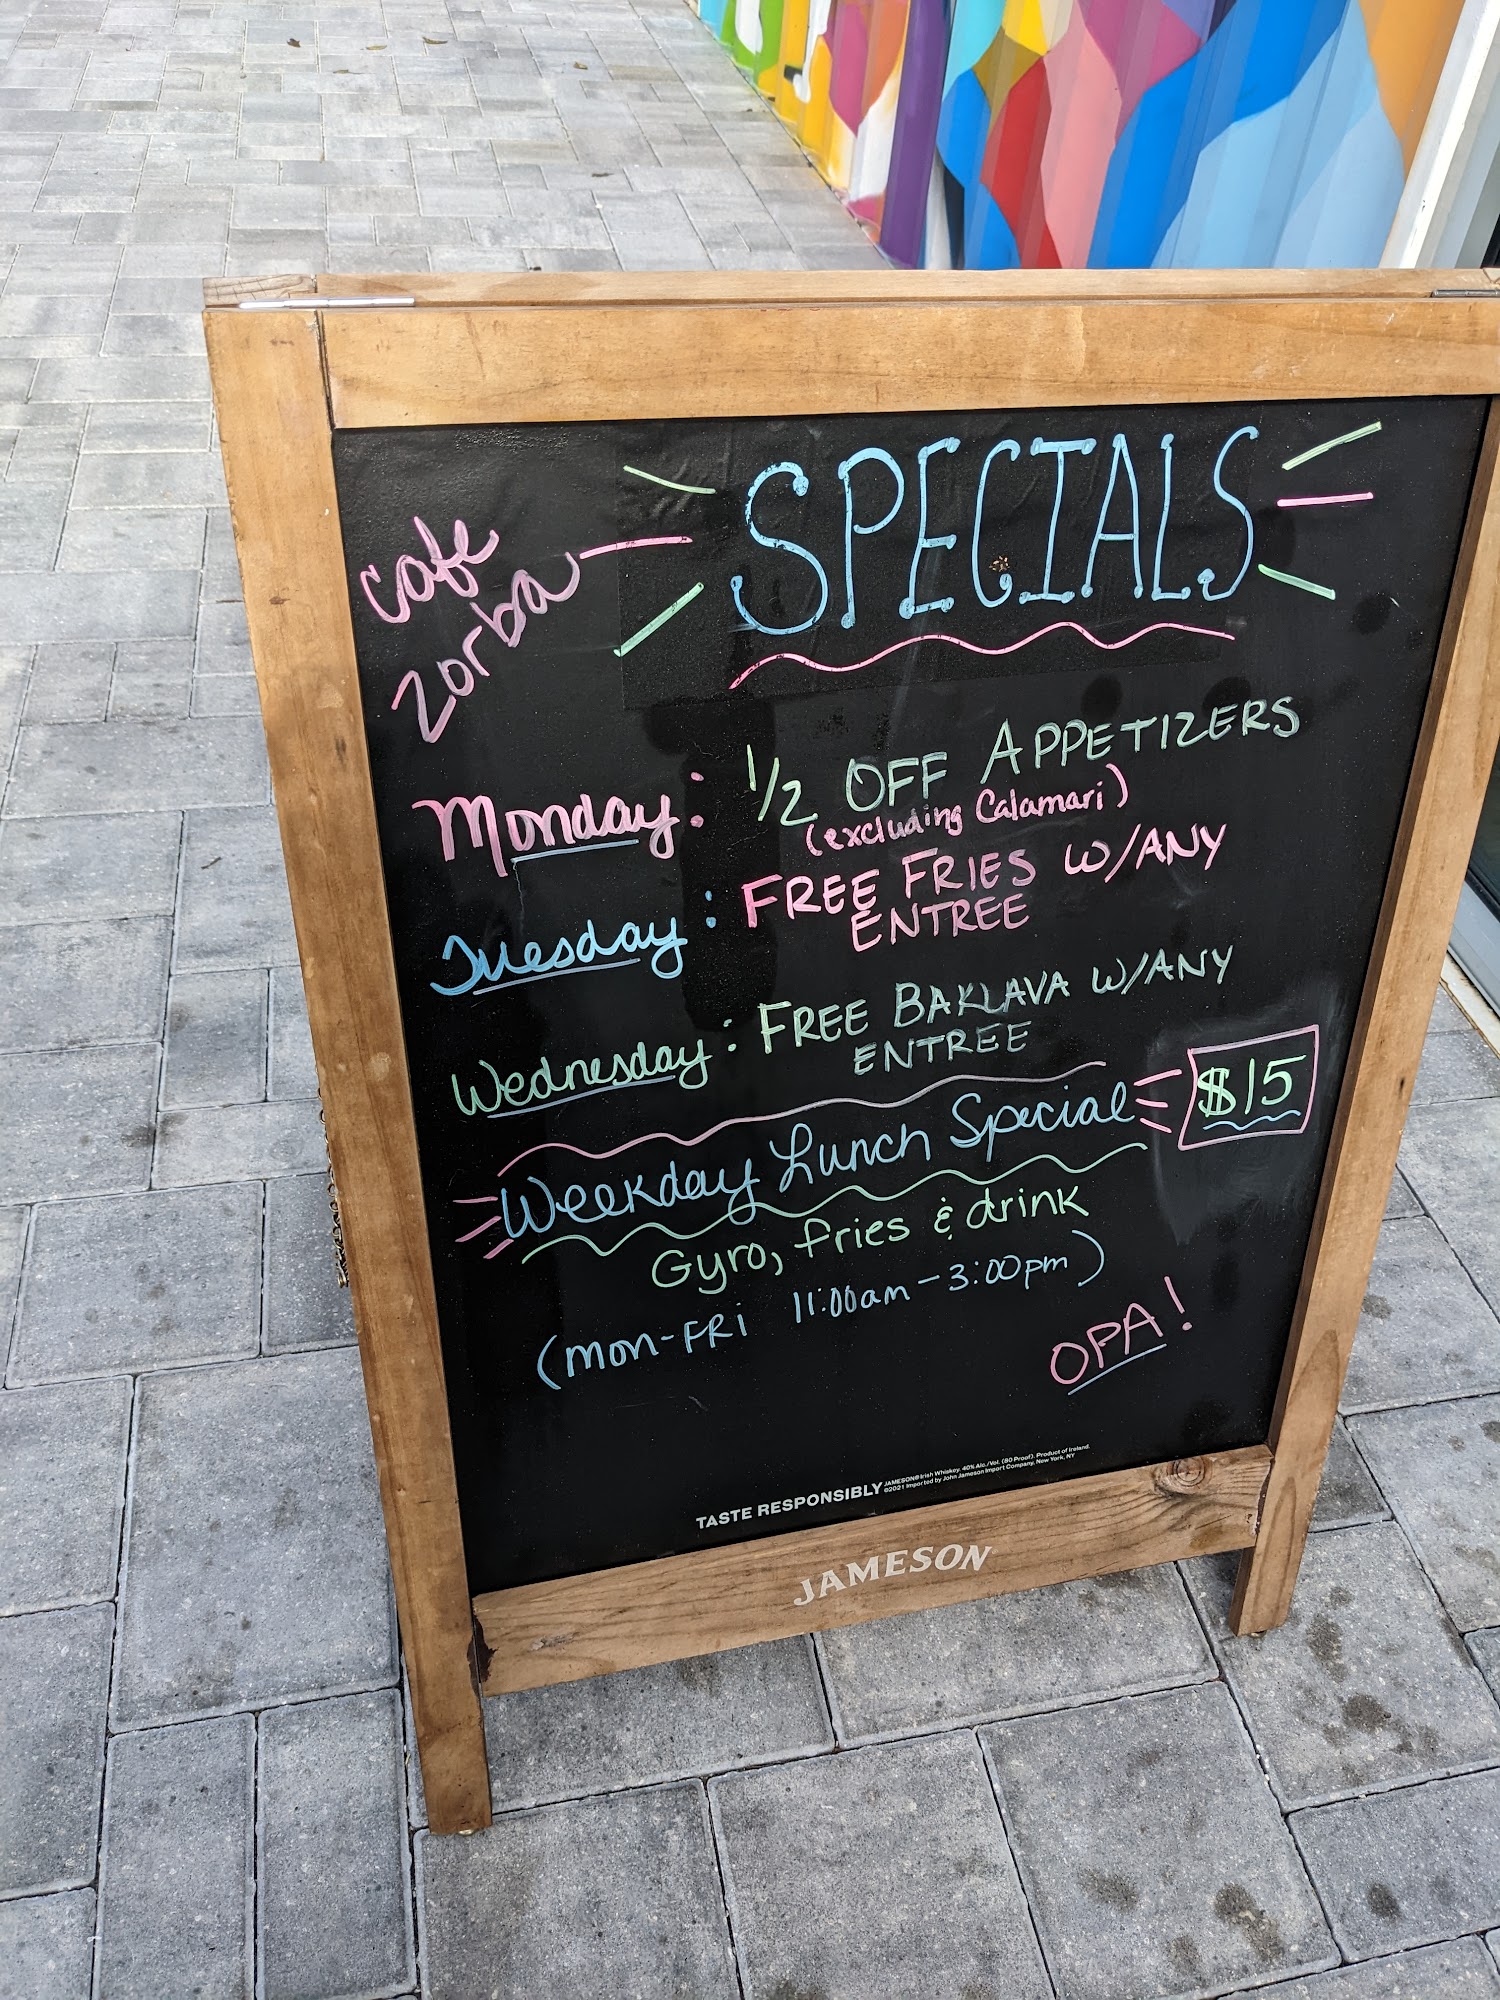 cafe
zorba
SPECIALS
Monday: 1/2 OFF APPETIZERS
(excluding Calamari)
Tuesday: FREE FRIES W/ANY
ENTREE
Wednesday: FREE BAKLAVA W/ANY
ENTREE
Weekday Lunch Special $15
Gyro, fries & drink
(MON-FRI 11:00am-3:00pm)
OPA!
TASTE RESPONSIBLY
JAMESON® Irish Whiskey. 40% Alc./Vol. (80 Proof). Product of Ireland.
©2021 Imported by John Jameson Import Company, New York, NY
JAMESON